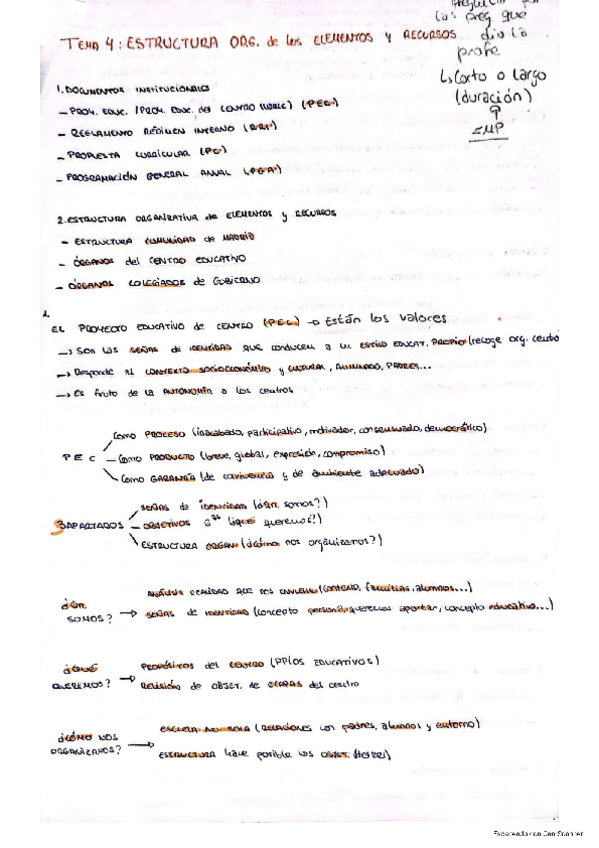 las preg que
dio la
profe
↳ Corto o largo
(duración)
TEMA 4: ESTRUCTURA ORG. de los ELEMENTOS y RECURSOS
1. DOCUMENTOS INSTITUCIONALES
- PROY. EDUC. / PROY. EDUC. del CENTRO (PEC)
- REGLAMENTO RÉGIMEN INTERNO (RRI)
- PROPUESTA CURRICULAR (PC)
- PROGRAMACIÓN GENERAL ANUAL (PGA)
2. ESTRUCTURA ORGANIZATIVA de ELEMENTOS y RECURSOS
- ESTRUCTURA COMUNIDAD de MADRID
- ÓRGANOS del CENTRO EDUCATIVO
- ÓRGANOS COLEGIADOS de GOBIERNO
1.
EL PROYECTO EDUCATIVO de CENTRO (PEC) → Están los valores
→ SON LAS SEÑAS de IDENTIDAD QUE CONDUCEN A UN ESTILO EDUCAT. PROPIO (recoge org. centro
→ Responde AL CONTEXTO SOCIOECONÓMICO y CULTURAL, ALUMNADO, PADRES...
→ Es fruto de la AUTONOMÍA a los centros
PEC
Como PROCESO (inacabado, participativo, motivador, consensuado, democrático)
Como PRODUCTO (breve, global, expresión, compromiso)
Como GARANTÍA (de convivencia y de ambiente adecuado)
3 APARTADOS
SEÑAS de IDENTIDAD (¿qn. somos?)
OBJETIVOS Gles (¿qué queremos?)
ESTRUCTURA ORGAN (¿cómo nos organizamos?)
¿QN. SOMOS? →
ANÁLISIS REALIDAD QUE NOS ENVUELVE (contexto, familias, alumnos...)
SEÑAS de IDENTIDAD (concepto persona, queremos aportar, concepto educativo...)
¿QUÉ QUEREMOS? →
PROPÓSITOS del CENTRO (PPIOS EDUCATIVOS)
RELACIÓN de OBJET. de ETAPAS del centro
¿CÓMO NOS ORGANIZAMOS? →
ESCUELA NO SOLA (RELACIONES con padres, alumnos y entorno)
ESTRUCTURA hace posible los OBJET.
Escaneado con CamScanner